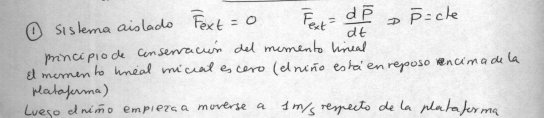 ① Sistema aislado F̅ext = 0 F̅ext = dp̅/dt ⇒ p̅ = cte
principio de conservación del momento lineal
el momento lineal inicial es cero (el niño está en reposo encima de la
plataforma)
Luego el niño empieza a moverse a 1m/s respecto de la plataforma